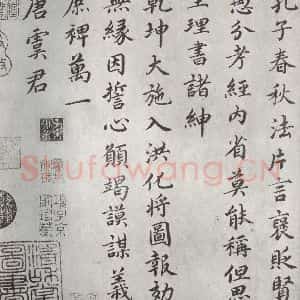 孔子春秋法片言褒貶賢
愆分考經内省莫能稱但思
生理書諸紳
乾坤大施入洪化將圖報効
無緣因誓心願竭謨謀義
庶裨萬一
唐虞君
Shufawang.CN